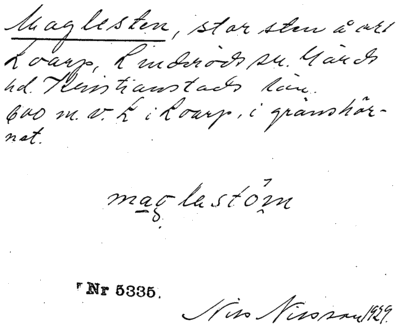 Maglesten, stor sten å ort
Loarp, Linderöds sn. Gärds
hd. Kristianstads län.
600 m. v. L i Loarp, i gränshör-
net.
maglastöin
Nr 5335.
Nils Nilsson 1929.